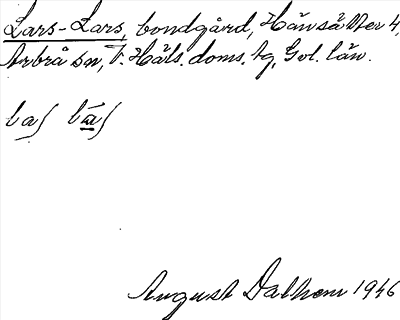 Lars-Lars, bondgård, Hänsätter 4,
Arbrå sn, V. Häls. doms. tg, Gvl. län.
August Dalhem 1946